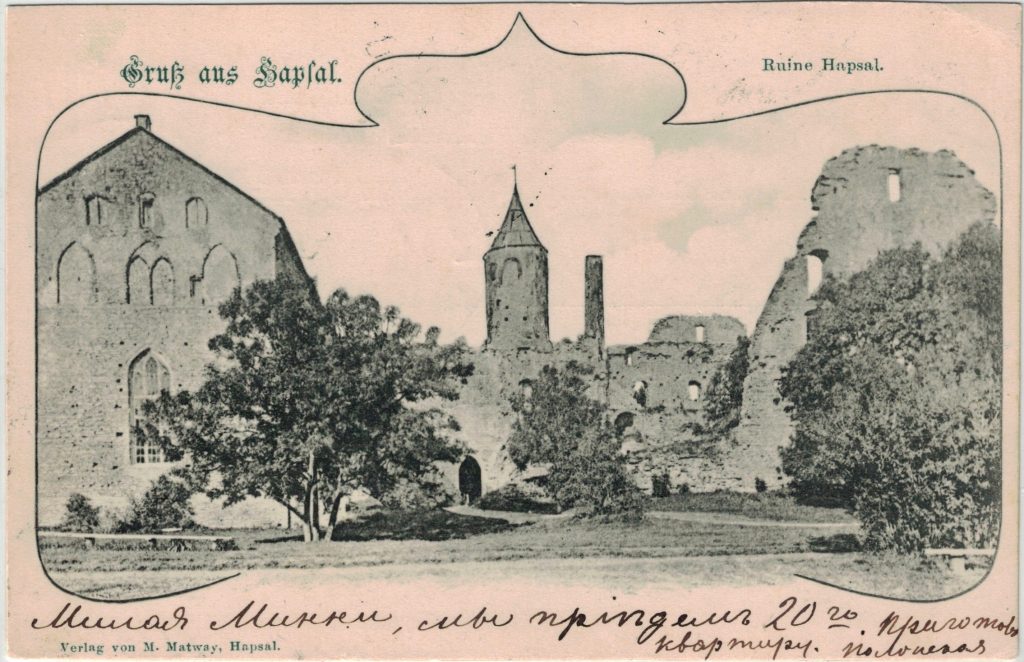 Gruß aus Hapſal.
Ruine Hapsal.
Милая Минни, мы пріѣдемъ 20го. Приготовь
квартиру.
Verlag von M. Matway, Hapsal.